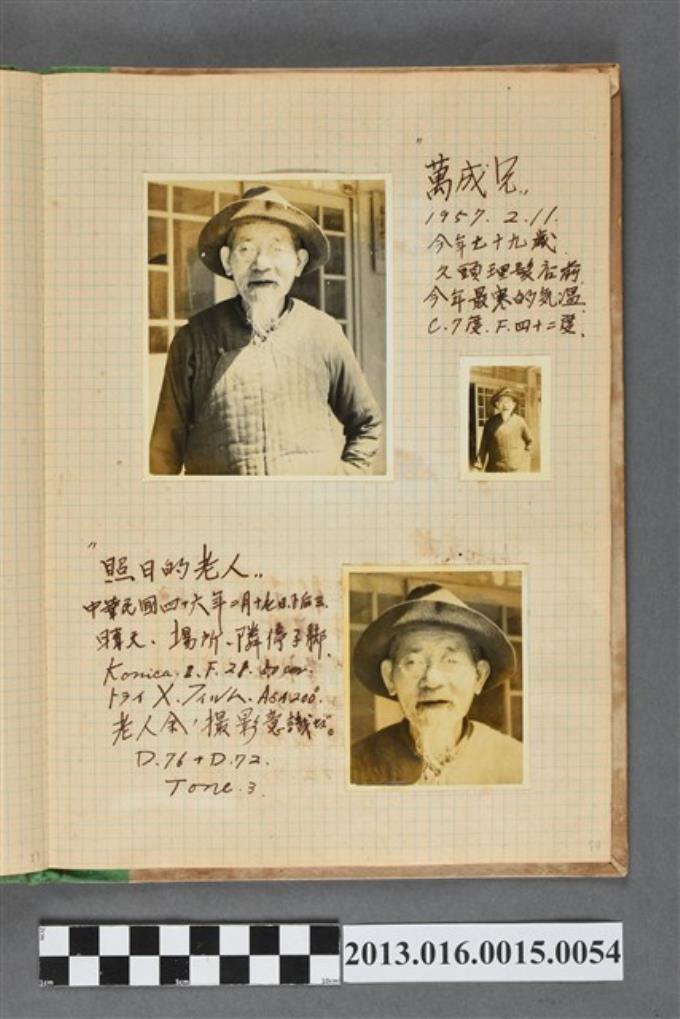 "萬成兄"
1957. 2. 11.
今年七十九歲
久頭理髮店前
今年最寒的気温.
C.7度. F.四十二度.
"照日的老人"
中華民國四十六年二月十七日.下后三.
晴天、場所、隣停子脚.
Konica.I.F.2.8.50cm.
トライX.フィルム.ASA200°.
老人余,撮影意識
D.76+D.72.
Tone.3.
2013.016.0015.0054